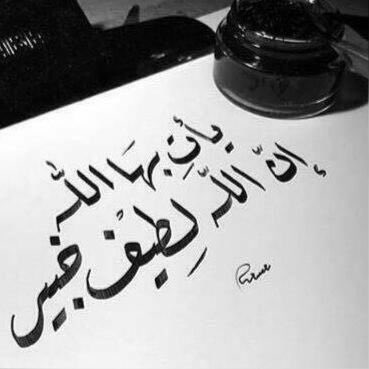 يأتِ بِهَا اللّٰه
إنّ اللّٰه لطِيفٌ خبير